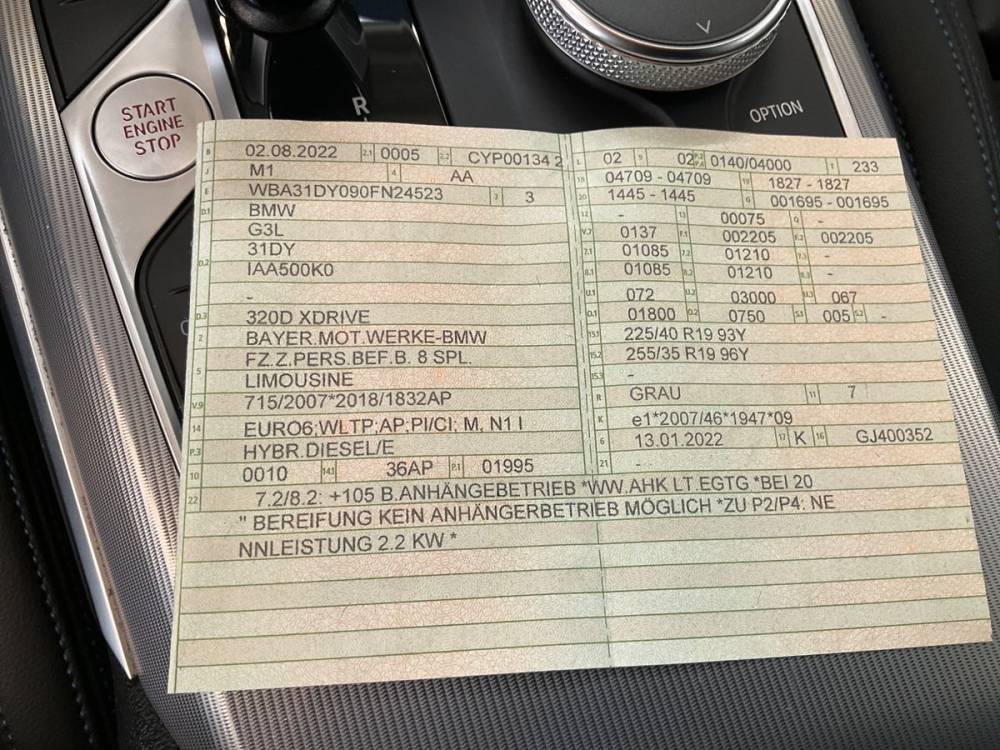 START
ENGINE
STOP
R
OPTION
B 02.08.2022 2.1 0005 2.2 CYP00134 2
J M1 4 AA
E WBA31DY090FN24523 3 3
D.1 BMW
G3L
31DY
D.2 IAA500K0
-
D.3 320D XDRIVE
2 BAYER.MOT.WERKE-BMW
5 FZ.Z.PERS.BEF.B. 8 SPL.
LIMOUSINE
V.9 715/2007*2018/1832AP
14 EURO6;WLTP;AP;PI/CI; M, N1 I
P.3 HYBR.DIESEL/E
10 0010 14.1 36AP P.1 01995
L 02 9 02 0140/04000 T 233
18 04709 - 04709 19 1827 - 1827
20 1445 - 1445 G 001695 - 001695
12 - 13 00075 Q -
V.7 0137 F.1 002205 F.2 002205
7.1 01085 7.2 01210 7.3 -
8.1 01085 8.2 01210 8.3 -
U.1 072 U.2 03000 U.3 067
O.1 01800 O.2 0750 S.1 005 S.2 -
15.1 225/40 R19 93Y
15.2 255/35 R19 96Y
15.3 -
R GRAU 11 7
K e1*2007/46*1947*09
6 13.01.2022 17 K 16 GJ400352
21 - -
22 7.2/8.2: +105 B.ANHÄNGEBETRIEB *WW.AHK LT.EGTG *BEI 20
" BEREIFUNG KEIN ANHÄNGERBETRIEB MÖGLICH *ZU P2/P4: NE
NNLEISTUNG 2.2 KW *